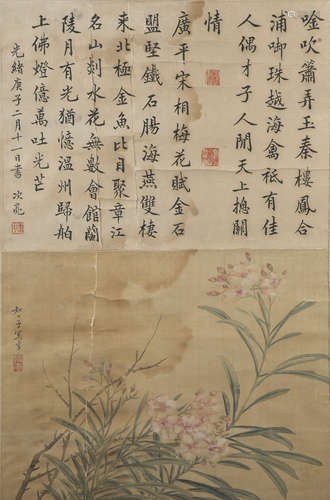 唫吹簫玉秦樓鳳合
浦啣珠越海禽祗有佳
人偶才子人間天上揔關
情
廣平宋相梅花賦金石
盟堅鐵石腸海燕雙棲
來北極金魚比目聚章江
名山剡水花無數會館蘭
陵月有光猶憶溫州歸舶
上佛燈億萬吐光芒
光緒庚子二月十一日書 次
寫生